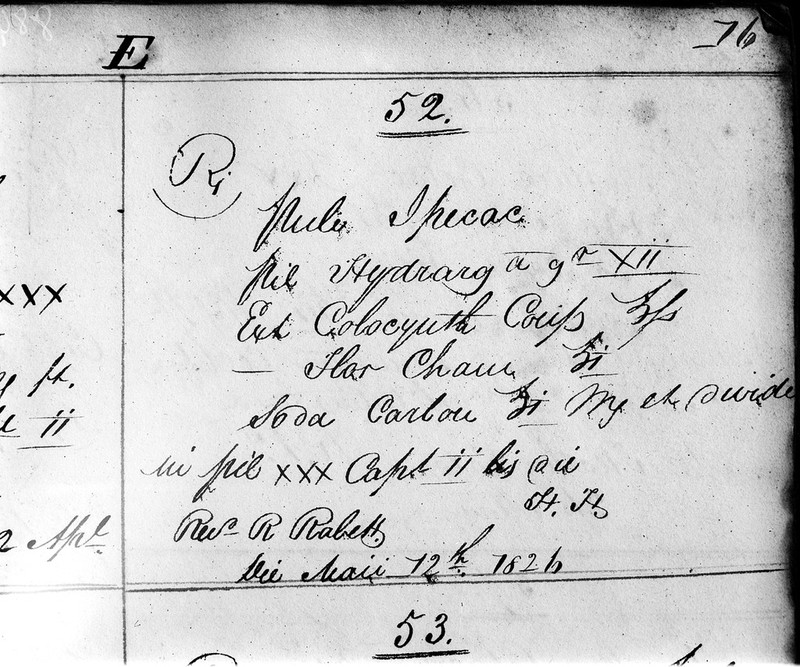 E 76
52.
R
Pulv Ipecac
Pil Hydrarg a gr xii
xxx
Ext Colocynth Comp ʒß
— Flor Cham ʒi
ft.
Soda Carbon ʒi Mx et divide
ii
in pil xxx Capt ii bis die
H. H
Revd R Rabett
Apl
Die Maii 12th 1826
53.